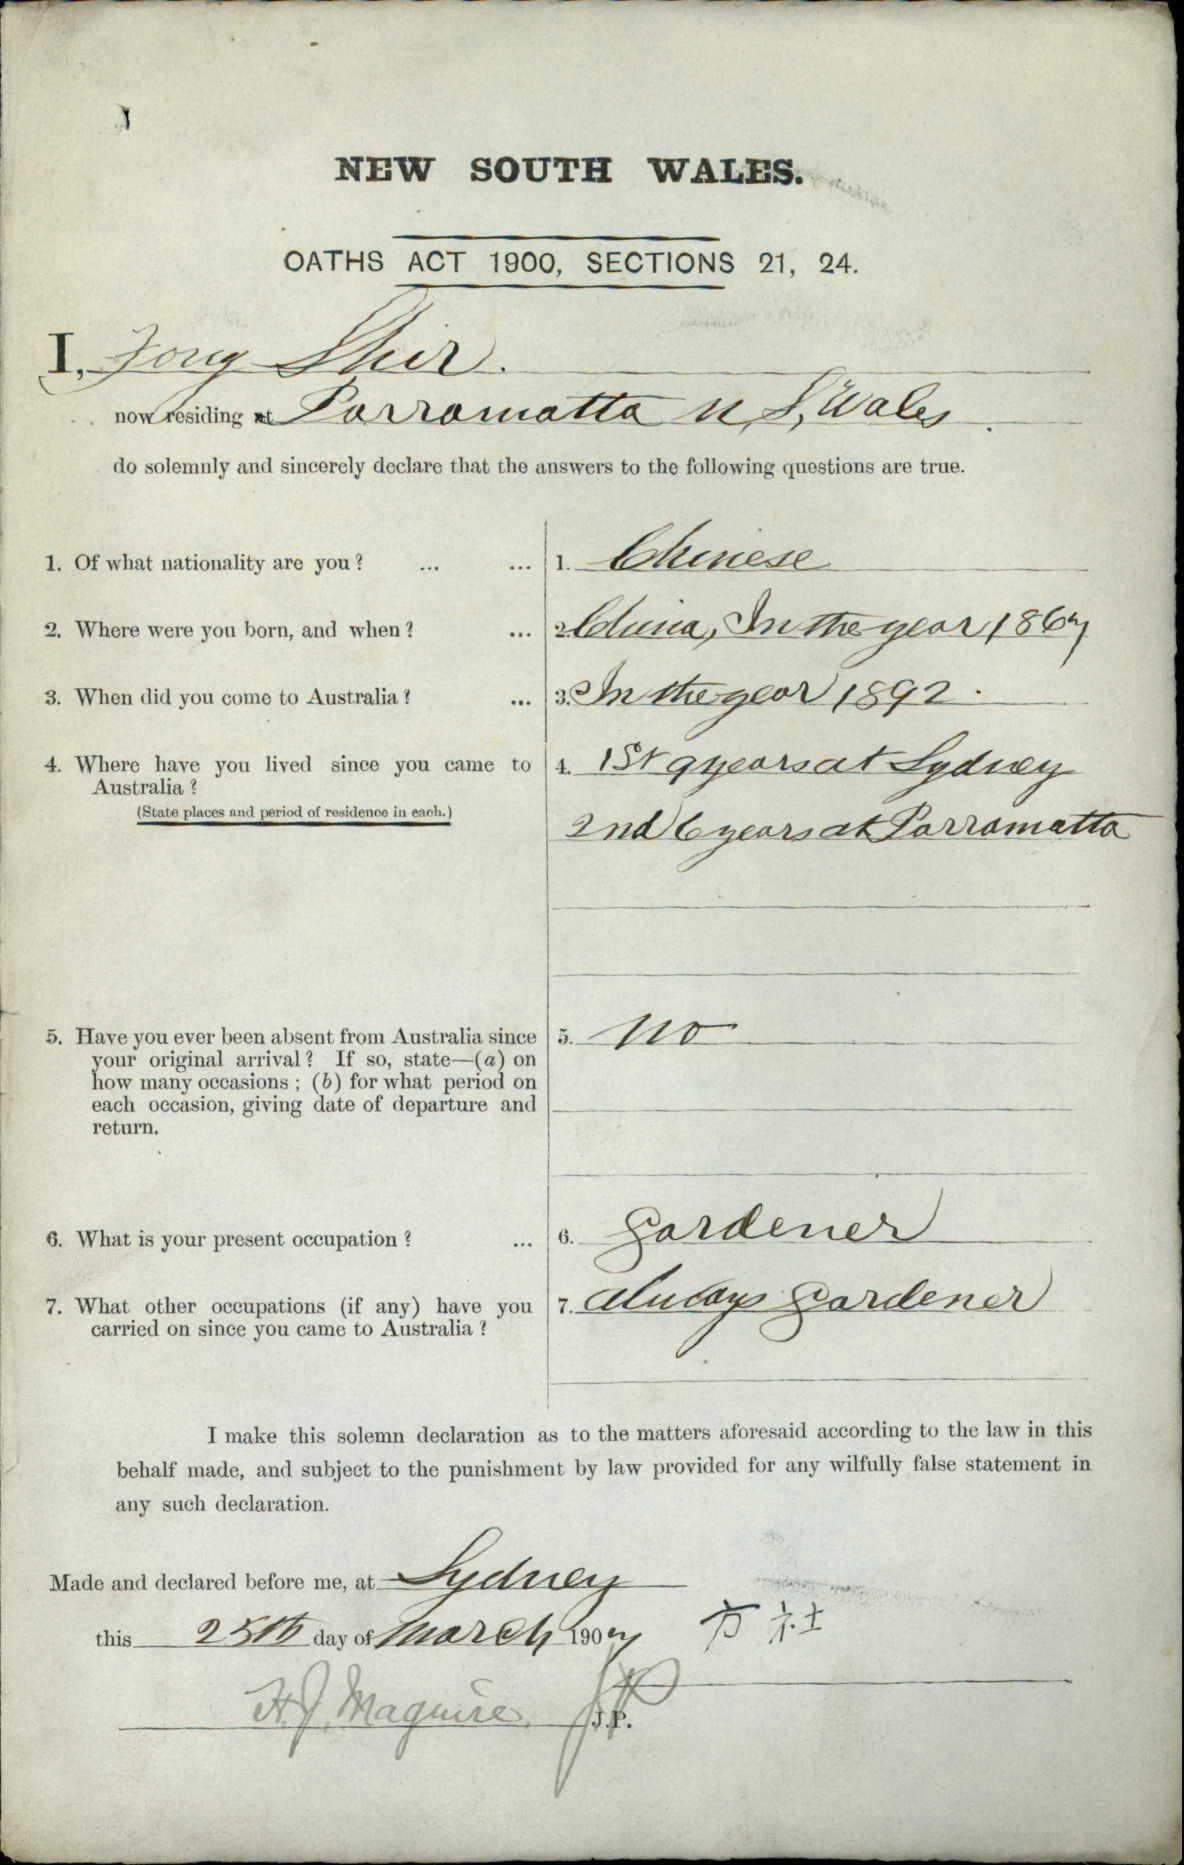 NEW SOUTH WALES.
OATHS ACT 1900, SECTIONS 21, 24.
I, Fong Shir.
now residing at Parramatta N, S, Wales.
do solemnly and sincerely declare that the answers to the following questions are true.
1. Of what nationality are you? ... ... 1. Chinese
2. Where were you born, and when? ... 2. China, In the year 1867
3. When did you come to Australia? ... 3. In the year 1892.
4. Where have you lived since you came to 4. 1St 9 years at Sydney
Australia?
(State places and period of residence in each.)
2nd 6 years at Parramatta
5. Have you ever been absent from Australia since 5. no
your original arrival? If so, state—(a) on
how many occasions; (b) for what period on
each occasion, giving date of departure and
return.
6. What is your present occupation? ... 6. gardener
7. What other occupations (if any) have you 7. always gardener
carried on since you came to Australia?
I make this solemn declaration as to the matters aforesaid according to the law in this
behalf made, and subject to the punishment by law provided for any wilfully false statement in
any such declaration.
Made and declared before me, at Sydney
this 25th day of March 1907 方社
H. J. Maguire. JP
J.P.